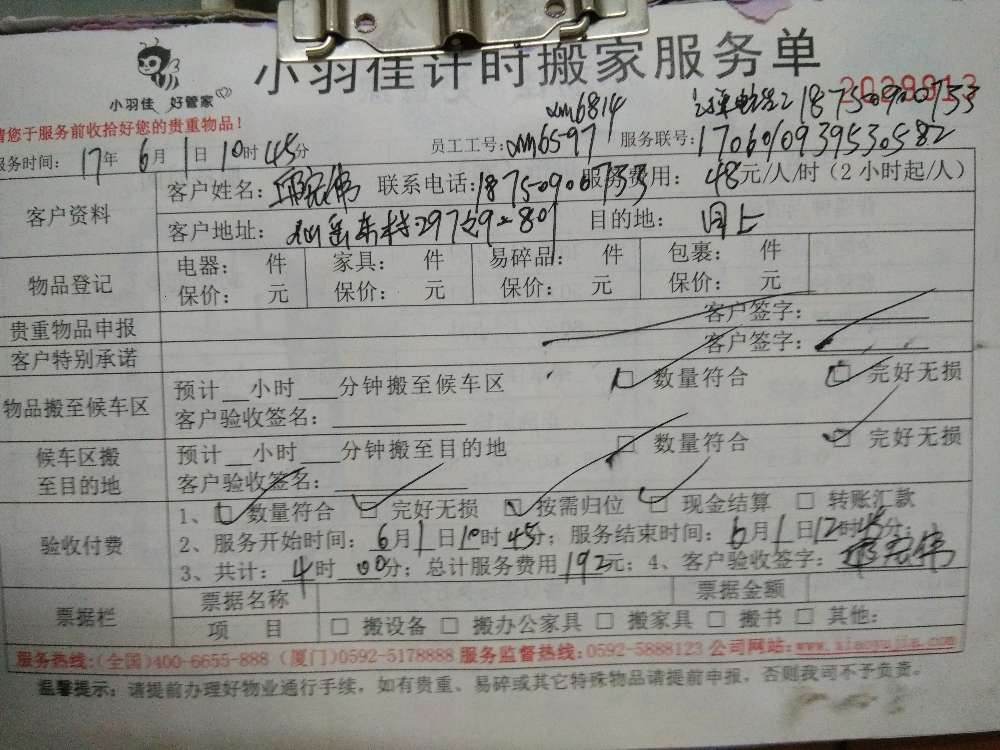 小羽佳计时搬家服务单
小羽佳 好管家
请您于服务前收拾好您的贵重物品!
xm6814 18750900753
服务时间: 17年 6月 1日 10时 45分 员工工号: xm6597 服务联号: 1706010939530582
客户资料 客户姓名: 邓宏伟 联系电话: 18750900753 服务费用: 48元/人/时(2小时起/人)
客户地址: 仙岳东村297之9-801 目的地: 同上
物品登记 电器: 件 家具: 件 易碎品: 件 包裹: 件
保价: 元 保价: 元 保价: 元 保价: 元
贵重物品申报 客户签字:
客户特别承诺 客户签字:
物品搬至候车区 预计__小时___分钟搬至候车区 □ 数量符合 □ 完好无损
客户验收签名:
候车区搬至目的地 预计__小时___分钟搬至目的地 □ 数量符合 □ 完好无损
客户验收签名:
验收付费 1、□ 数量符合 □ 完好无损 □ 按需归位 □ 现金结算 □ 转账汇款
2、服务开始时间: 6月1日10时45分; 服务结束时间: 6月1日12时45分;
3、共计: 4时00分; 总计服务费用192元; 4、客户验收签字: 邓宏伟
票据栏 票据名称 票据金额
项 目 □ 搬设备 □ 搬办公家具 □ 搬家具 □ 搬书 □ 其他:
服务热线:(全国)400-6655-888 (厦门)0592-5178888 服务监督热线:0592-5888123 公司网站:www.xiaoyujia.com
温馨提示: 请提前办理好物业通行手续, 如有贵重、易碎或其它特殊物品请提前申报, 否则我司不予负责。